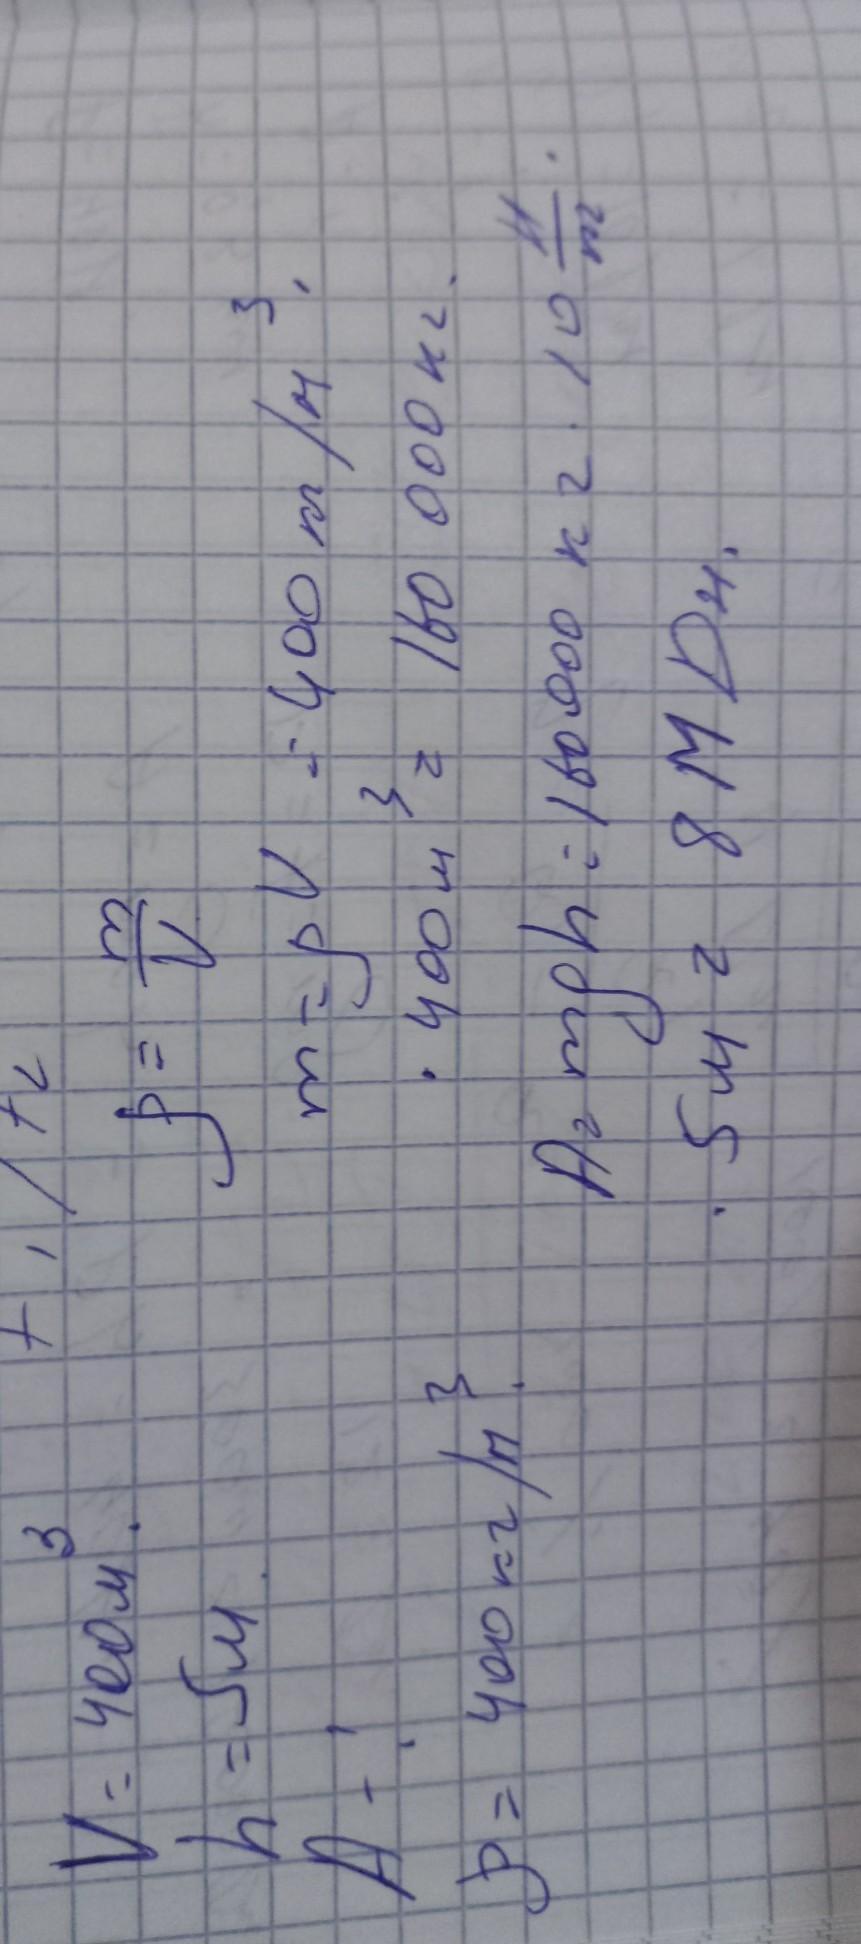 t, / t2
V = 400м³.
h = 5м.
A - ?
ρ = 400 кг/м³.
ρ = m/V
m = ρV = 400 кг/м³.
· 400 м³ = 160 000 кг.
A = mgh = 160000 кг · 10 Н/кг ·
· 5м = 8 МДж.